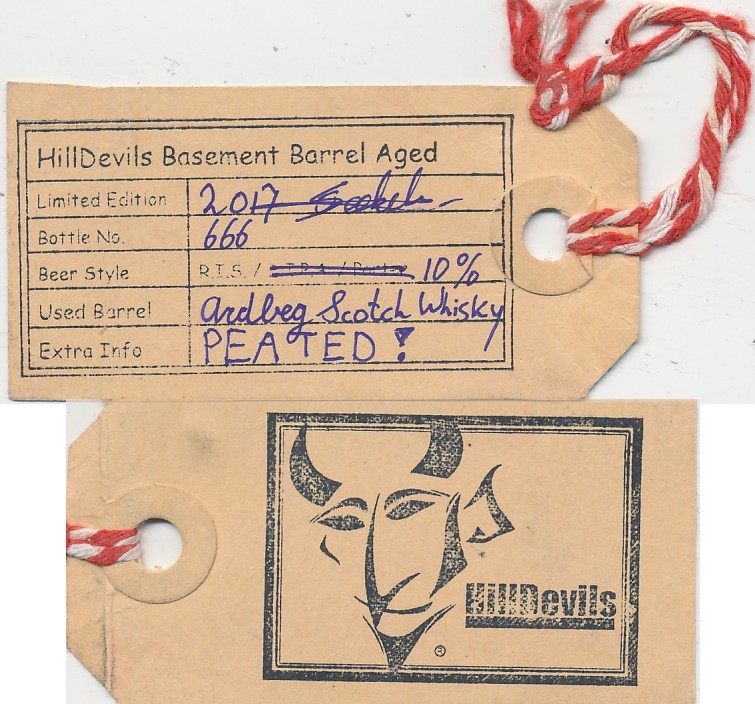 HillDevils Basement Barrel Aged
Limited Edition 2017
Bottle No. 666
Beer Style R.I.S. / 10%
Used Barrel Ardbeg Scotch Whisky
Extra Info PEATED!
HillDevils
®